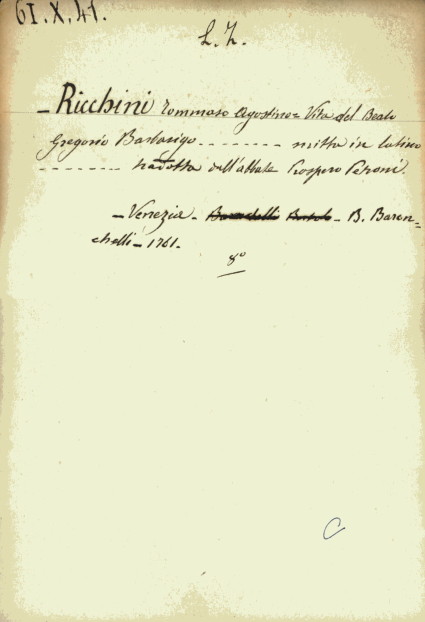 61.X.41.
L. Z.
- Ricchini Tommaso Agostino = Vita del Beato
Gregorio Barbarigo - - - - - - - scritta in latino
- - - - - - - - - tradotta dall'abbate Prospero Petroni.
- Venezia - B. Baron=
chelli - 1761.
8°
C